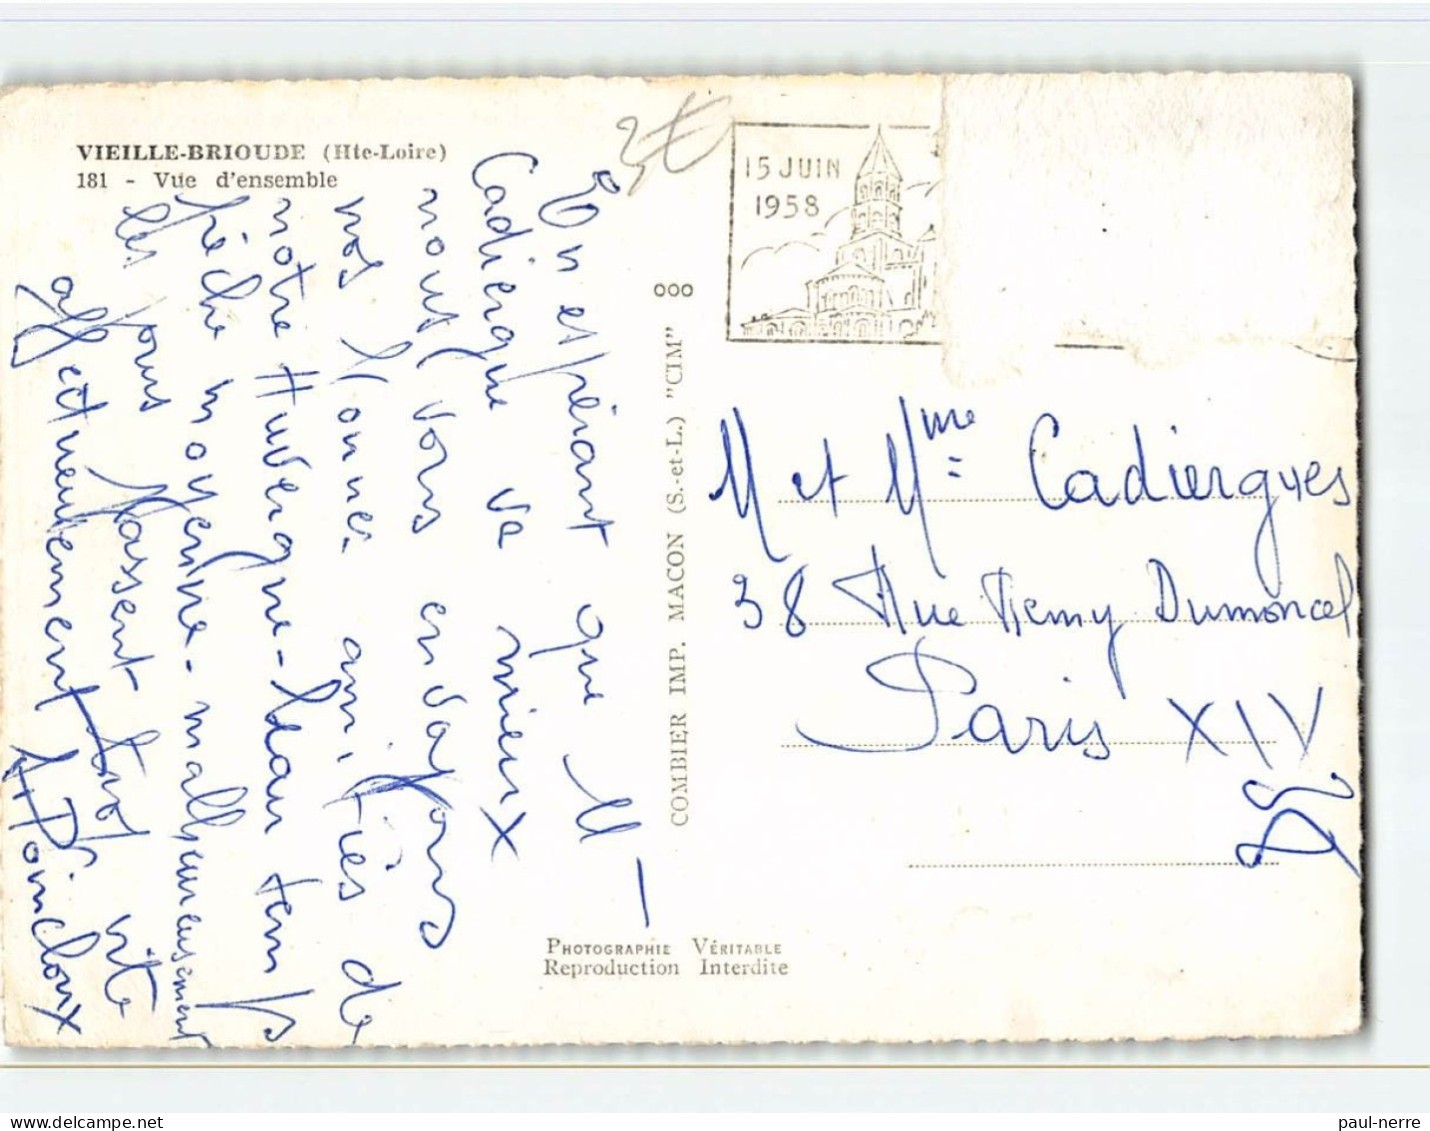 VIEILLE-BRIOUDE (Hte-Loire)
181 - Vue d'ensemble
3€
15 JUIN
1958
En espérant que M-
Cadiergue va mieux
nous vous envoyons
nos bonnes amitiés de
notre Auvergne - beau temps
pêche moyenne - malheureusement
les jours passent trop vite
affectueusement
Poincloux
ooo
COMBIER IMP. MACON (S.-et-L.) "CIM"
PHOTOGRAPHIE VÉRITABLE
Reproduction Interdite
M et Mme Cadiergues
38 Rue Remy Dumoncel
Paris XIV
paul-nerre